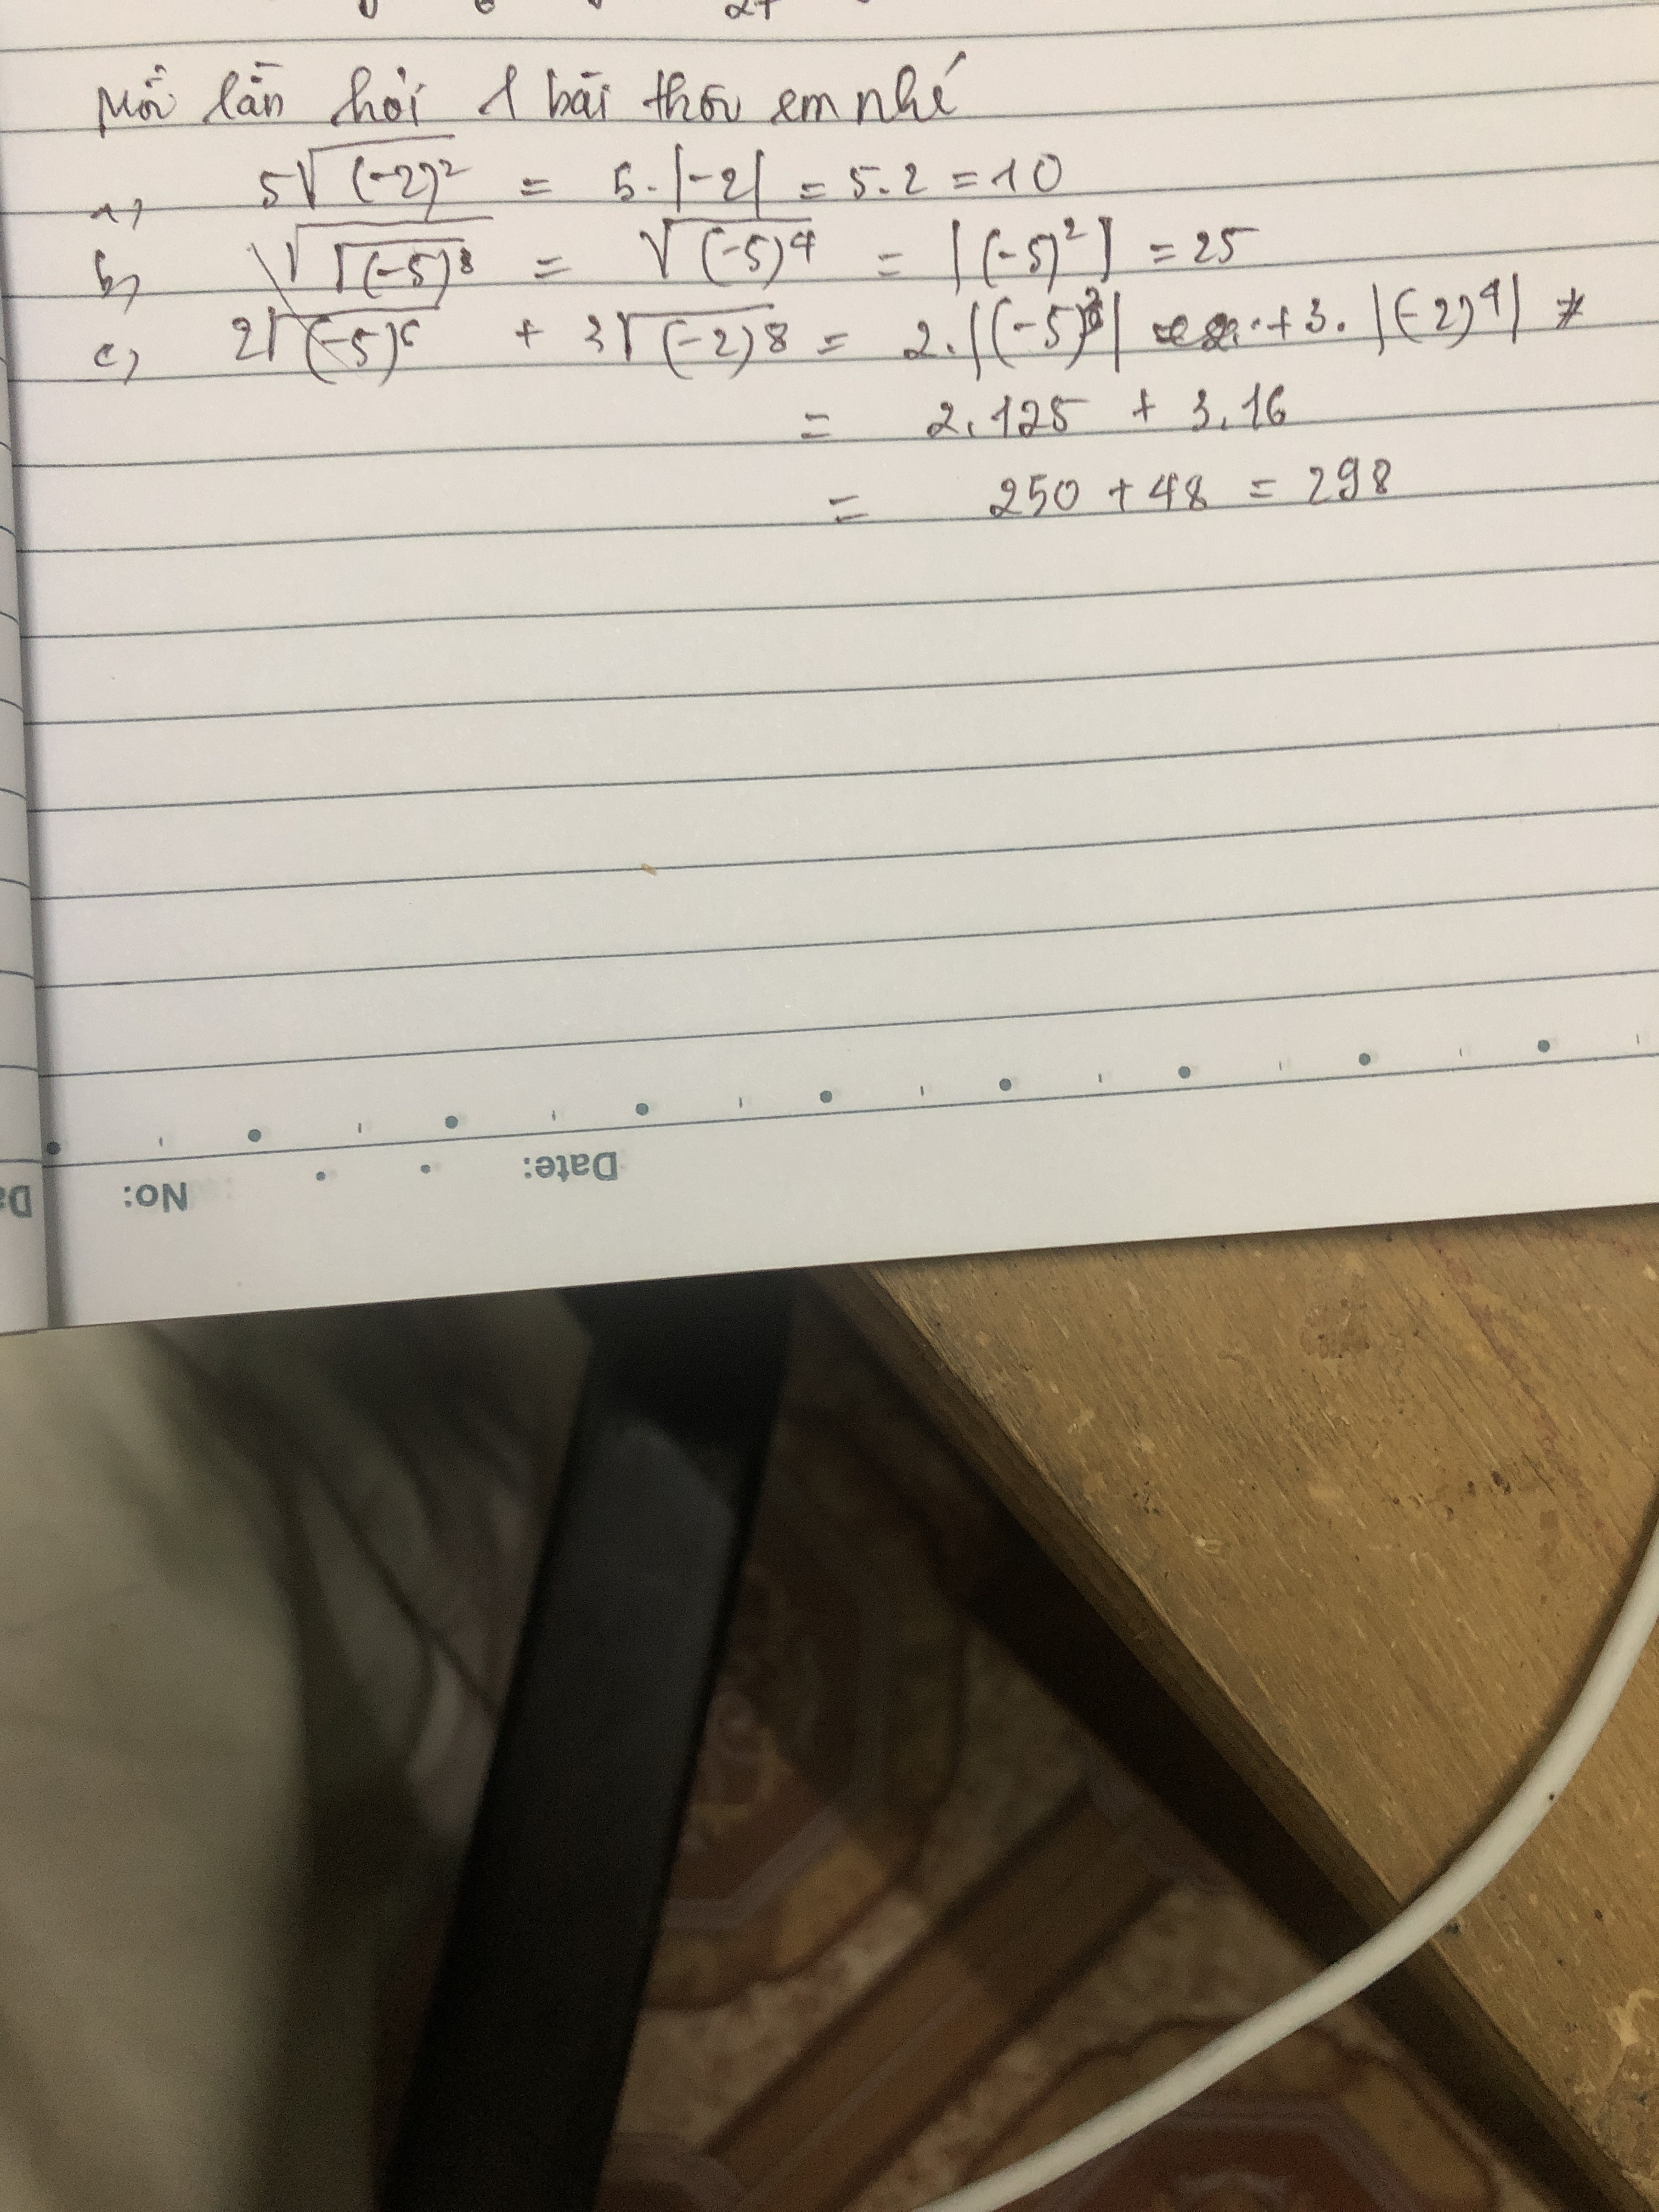 Mỗi lần hỏi 1 bài thôi em nhé
a, 5√(-2)² = 5.|-2| = 5.2 = 10
b, √√(-5)⁸ = √(-5)⁴ = |(-5)²| = 25
c, 2√(-5)⁶ + 3√(-2)⁸ = 2.|(-5)³| + 3.|(-2)⁴|
= 2.125 + 3.16
= 250 + 48 = 298
Date:
No: